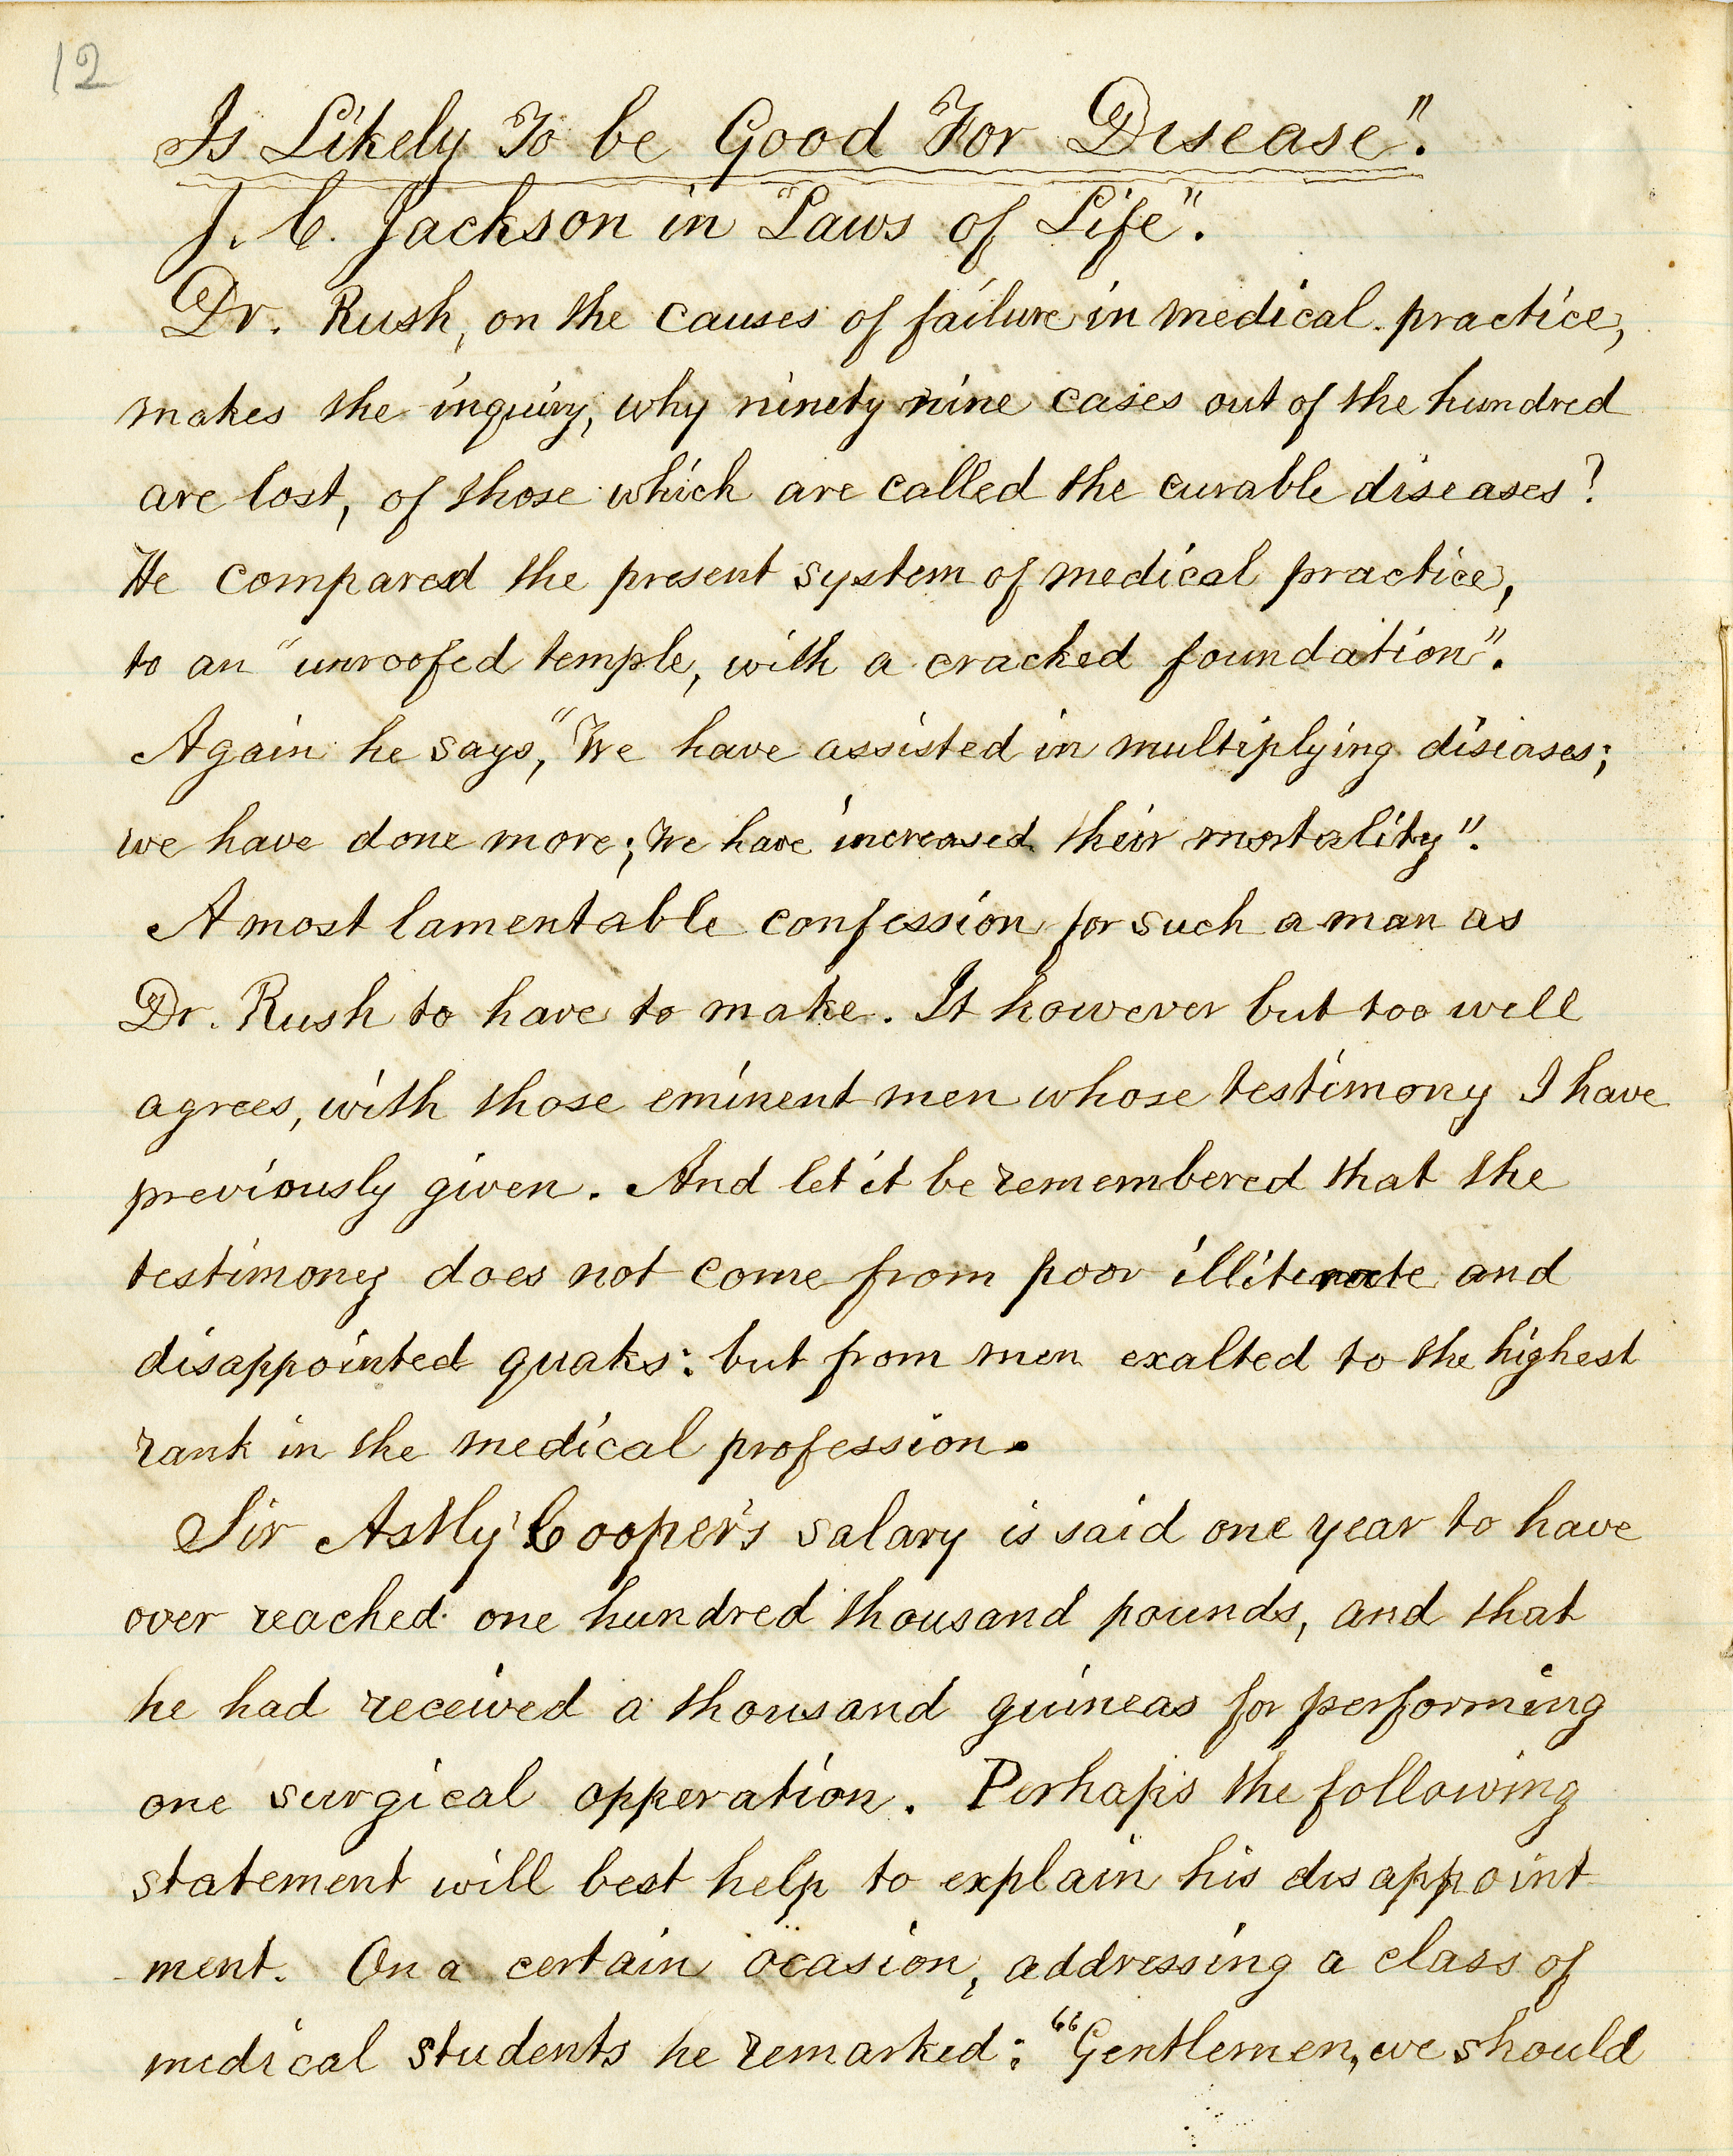 12
Is Likely To be Good For Disease".
J. C. Jackson in "Laws of Life".
Dr. Rush, on the causes of failure in medical practice,
makes the inquiry, why ninety nine cases out of the hundred
are lost, of those which are called the curable diseases?
He compared the present system of medical practice,
to an "unroofed temple, with a cracked foundation".
Again he says, "We have assisted in multiplying disiases;
we have done more; we have increased their mortality".
A most lamentable confession for such a man as
Dr. Rush to have to make. It however but too well
agrees, with those eminent men whose testimony I have
previously given. And let it be remembered that the
testimony does not come from poor illiterate and
disappointed quaks: but from men exalted to the highest
rank in the medical profession.
Sir Astly Cooper's salary is said one year to have
over reached one hundred thousand pounds, and that
he had received a thousand guineas for performing
one surgical opperation. Perhaps the following
statement will best help to explain his disappoint
ment. On a certain ocasion, addressing a class of
medical students he remarked: "Gentlemen, we should